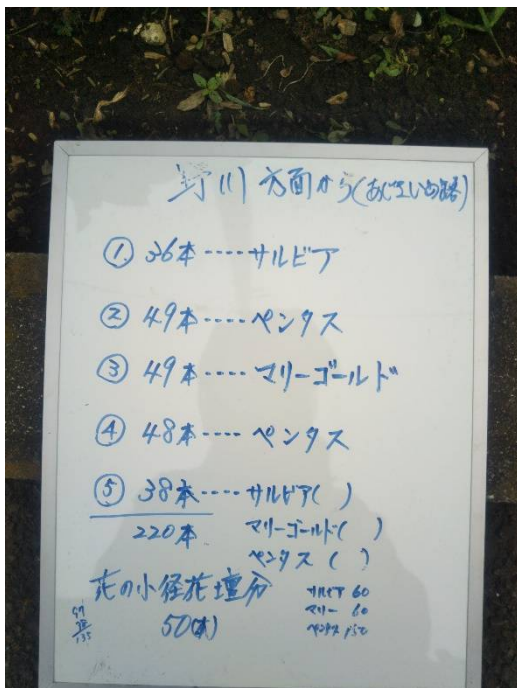 野川 方面から(あじさい通路)
① 36本----サルビア
② 49本----ペンタス
③ 49本----マリーゴールド
④ 48本----ペンタス
⑤ 38本----サルビア( )
220本 マリーゴールド( )
ペンタス ( )
花の小径花壇分
50(本)
サルビア 60
マリー 60
ペンタス
135